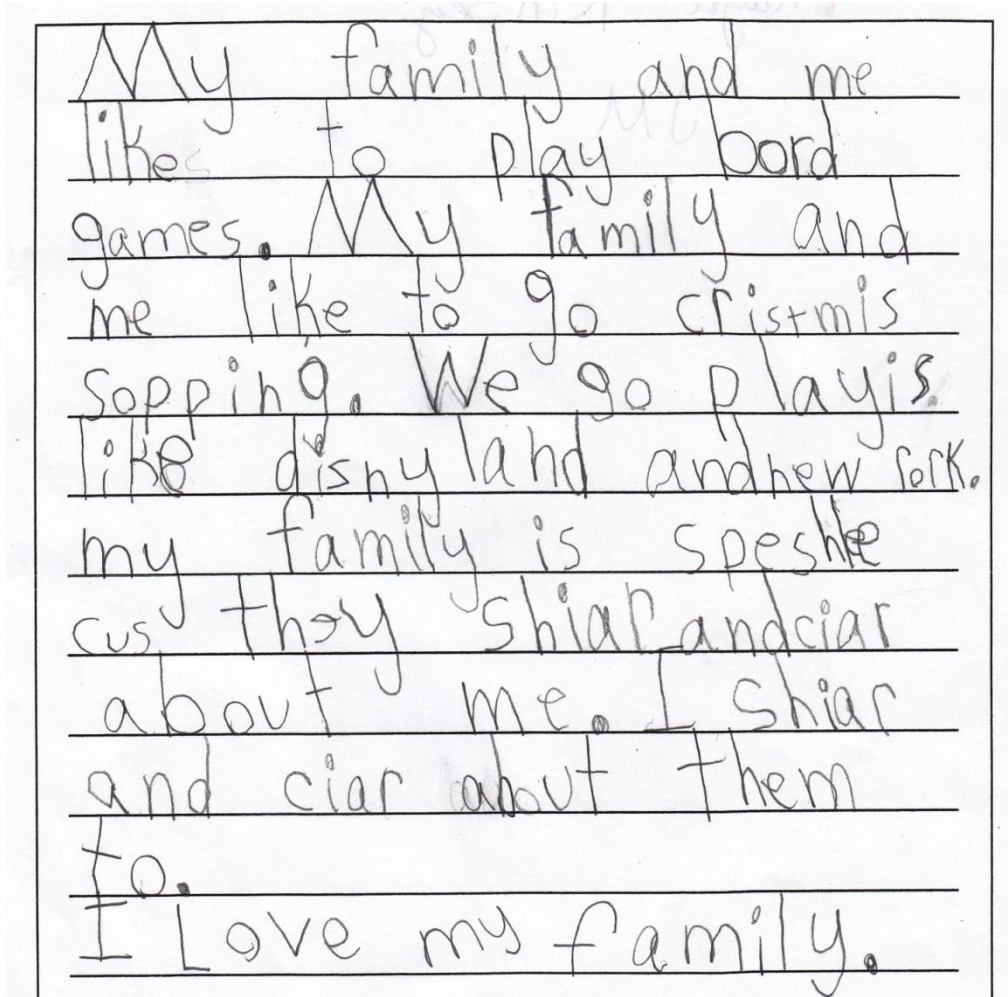 My family and me
like to play bord
games. My family and
me like to go cristmis
sopping. We go playis
like disnyland and new york.
my family is speshle
cus they shiar and ciar
about me. I shiar
and ciar about them
to.
I Love my family.